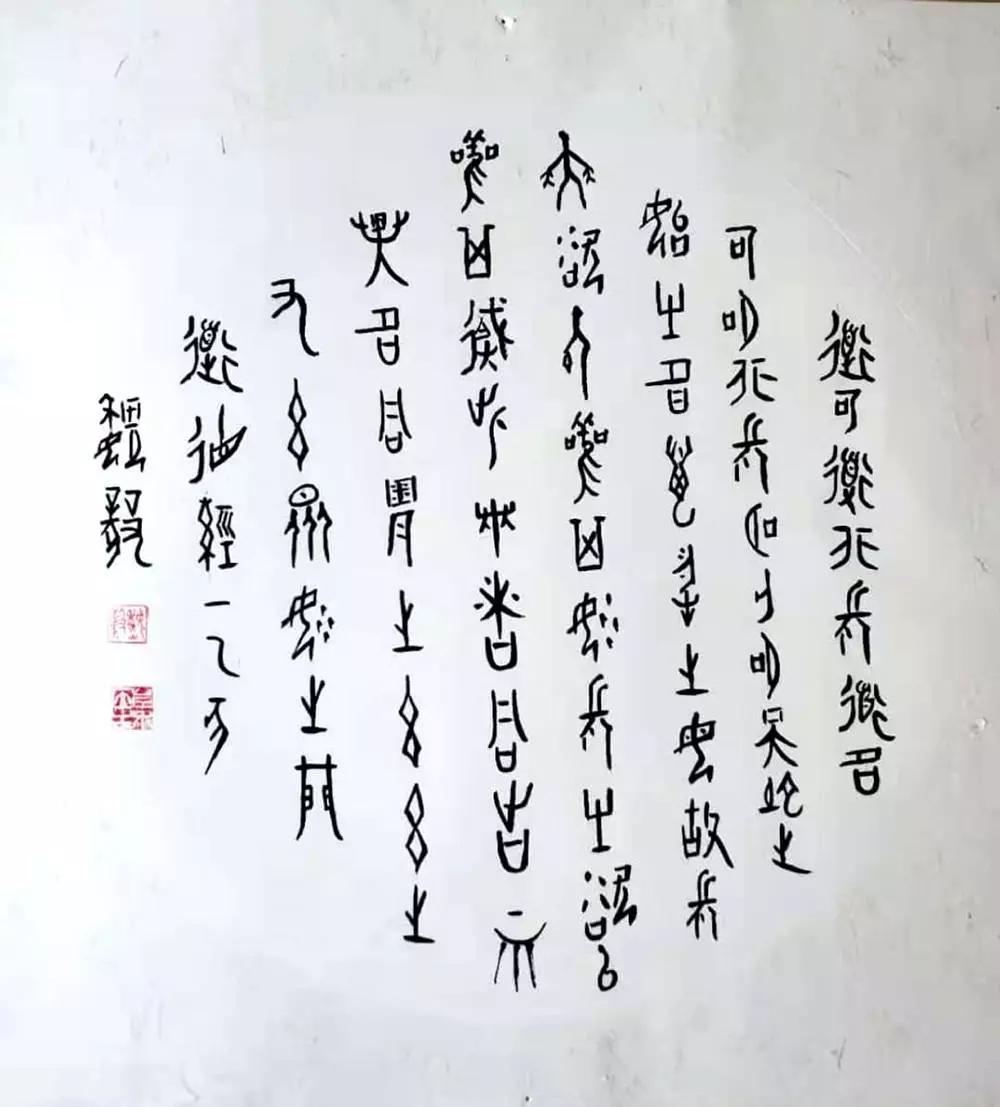 道可道非常道名
可名非常名無名天地之
始有名萬物之母故常
無欲以觀其妙常有欲以
觀其徼此兩者同出而
異名同謂之玄玄之
又玄眾妙之門
道德經一